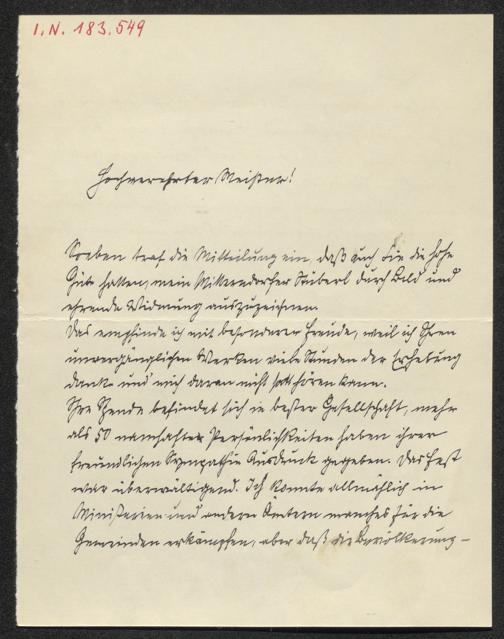 I.N. 183.549
Hochverehrter Meister!
Soeben traf die Mitteilung ein, daß auch Sie die hohe
Güte hatten, mein Mitterndorfer Stüberl durch Bild und
ehrende Widmung auszuzeichnen.
Das empfinde ich mit besonderer Freude, weil ich Ihren
unvergänglichen Werken viele Stunden der Erhebung
danke und mich daran nicht satt hören kann.
Ihre Spende befindet sich in bester Gesellschaft, mehr
als 50 namhafte Persönlichkeiten haben ihrer
freundlichen Sympathie Ausdruck gegeben. Das Fest
war überwältigend. Ich konnte allmählich in
Ministerien und anderen Ämtern manches für die
Gemeinden erkämpfen, aber daß die Bevölkerung -